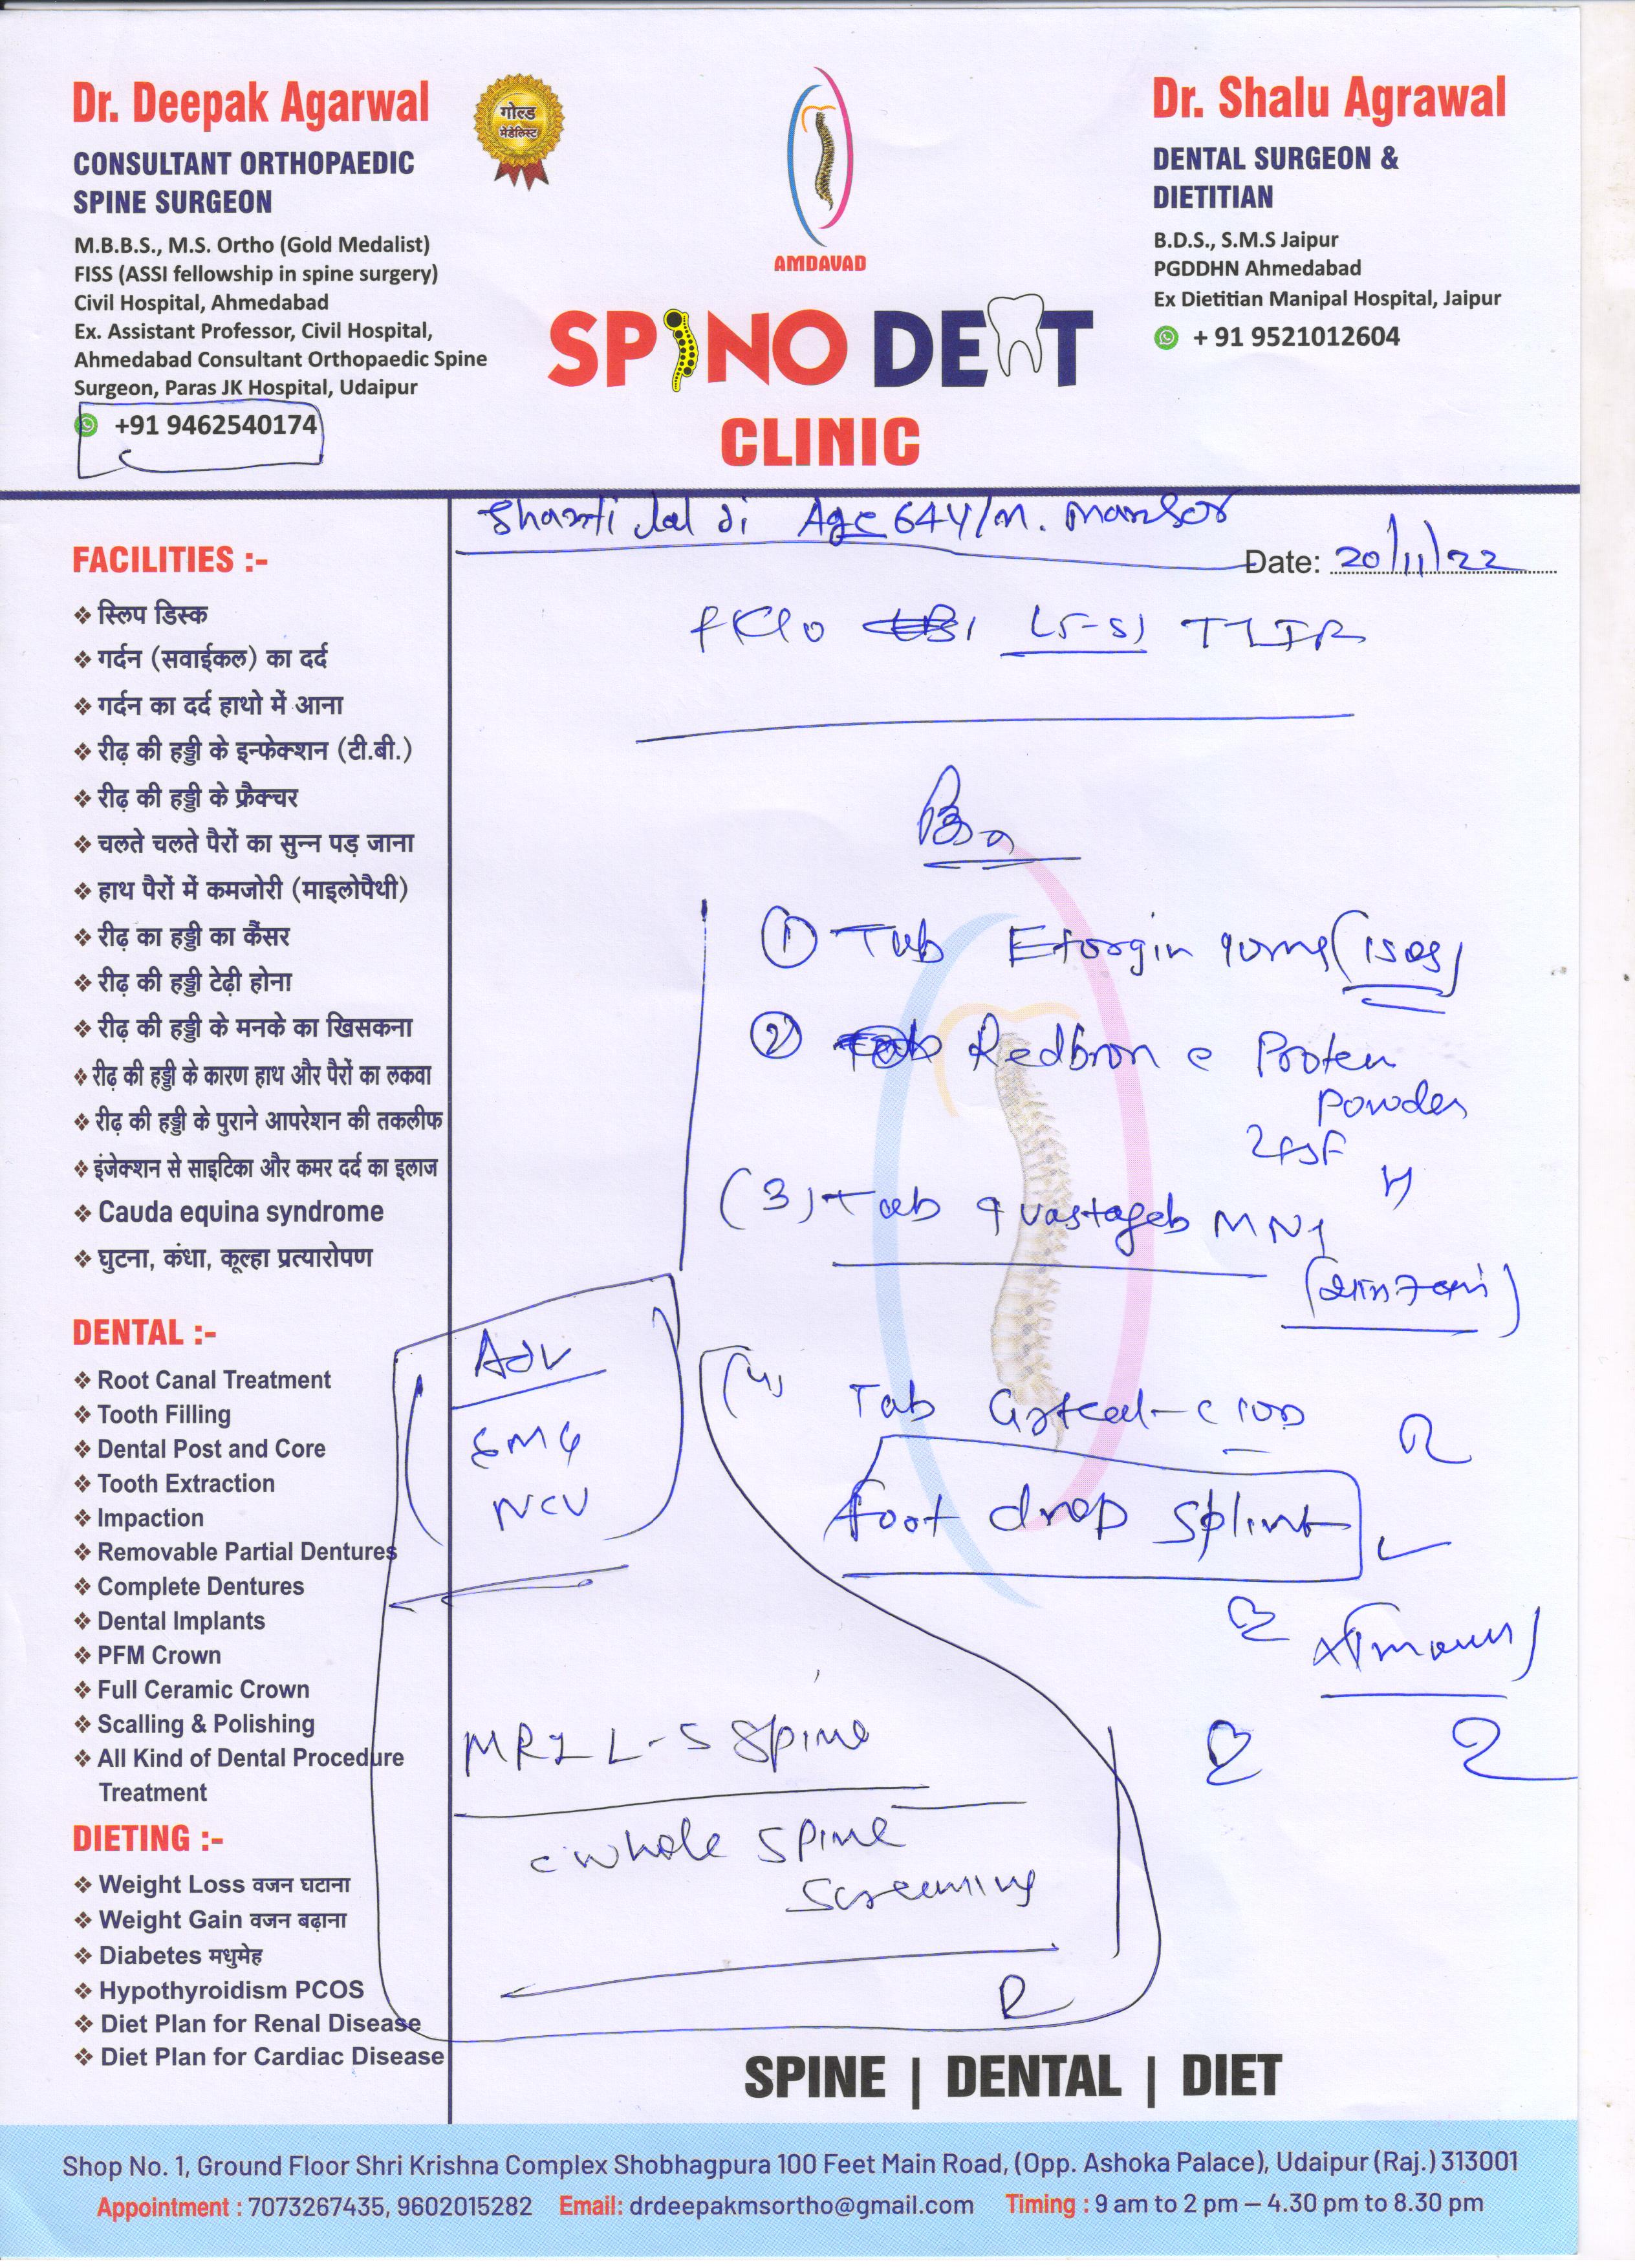 Dr. Deepak Agarwal
CONSULTANT ORTHOPAEDIC
SPINE SURGEON
M.B.B.S., M.S. Ortho (Gold Medalist)
FISS (ASSI fellowship in spine surgery)
Civil Hospital, Ahmedabad
Ex. Assistant Professor, Civil Hospital,
Ahmedabad Consultant Orthopaedic Spine
Surgeon, Paras JK Hospital, Udaipur
+91 9462540174
गोल्ड
मेडेलिस्ट
AMDAVAD
SPINO DENT
CLINIC
Dr. Shalu Agrawal
DENTAL SURGEON &
DIETITIAN
B.D.S., S.M.S Jaipur
PGDDHN Ahmedabad
Ex Dietitian Manipal Hospital, Jaipur
+ 91 9521012604
Shanti Lal Ji Age 64Y/M.
Date: 20/11/22
L5-S1
FACILITIES :-
स्लिप डिस्क
गर्दन (सवाईकल) का दर्द
गर्दन का दर्द हाथो में आना
रीढ़ की हड्डी के इन्फेक्शन (टी.बी.)
रीढ़ की हड्डी के फ्रैक्चर
चलते चलते पैरों का सुन्न पड़ जाना
हाथ पैरों में कमजोरी (माइलोपैथी)
रीढ़ का हड्डी का कैंसर
रीढ़ की हड्डी टेढ़ी होना
रीढ़ की हड्डी के मनके का खिसकना
रीढ़ की हड्डी के कारण हाथ और पैरों का लकवा
रीढ़ की हड्डी के पुराने आपरेशन की तकलीफ
इंजेक्शन से साइटिका और कमर दर्द का इलाज
Cauda equina syndrome
घुटना, कंधा, कूल्हा प्रत्यारोपण
DENTAL :-
Root Canal Treatment
Tooth Filling
Dental Post and Core
Tooth Extraction
Impaction
Removable Partial Dentures
Complete Dentures
Dental Implants
PFM Crown
Full Ceramic Crown
Scalling & Polishing
All Kind of Dental Procedure
Treatment
DIETING :-
Weight Loss वजन घटाना
Weight Gain वजन बढ़ाना
Diabetes मधुमेह
Hypothyroidism PCOS
Diet Plan for Renal Disease
Diet Plan for Cardiac Disease
① Tab Etorgin 90mg
② Redbron c Proten
Powder
(3) Tab
(4) Tab
foot drop splint
Adv
EMG
NCV
MRI L-S Spine
c whole spine
screening
SPINE | DENTAL | DIET
Shop No. 1, Ground Floor Shri Krishna Complex Shobhagpura 100 Feet Main Road, (Opp. Ashoka Palace), Udaipur (Raj.) 313001
Appointment : 7073267435, 9602015282 Email: drdeepakmsortho@gmail.com Timing : 9 am to 2 pm – 4.30 pm to 8.30 pm